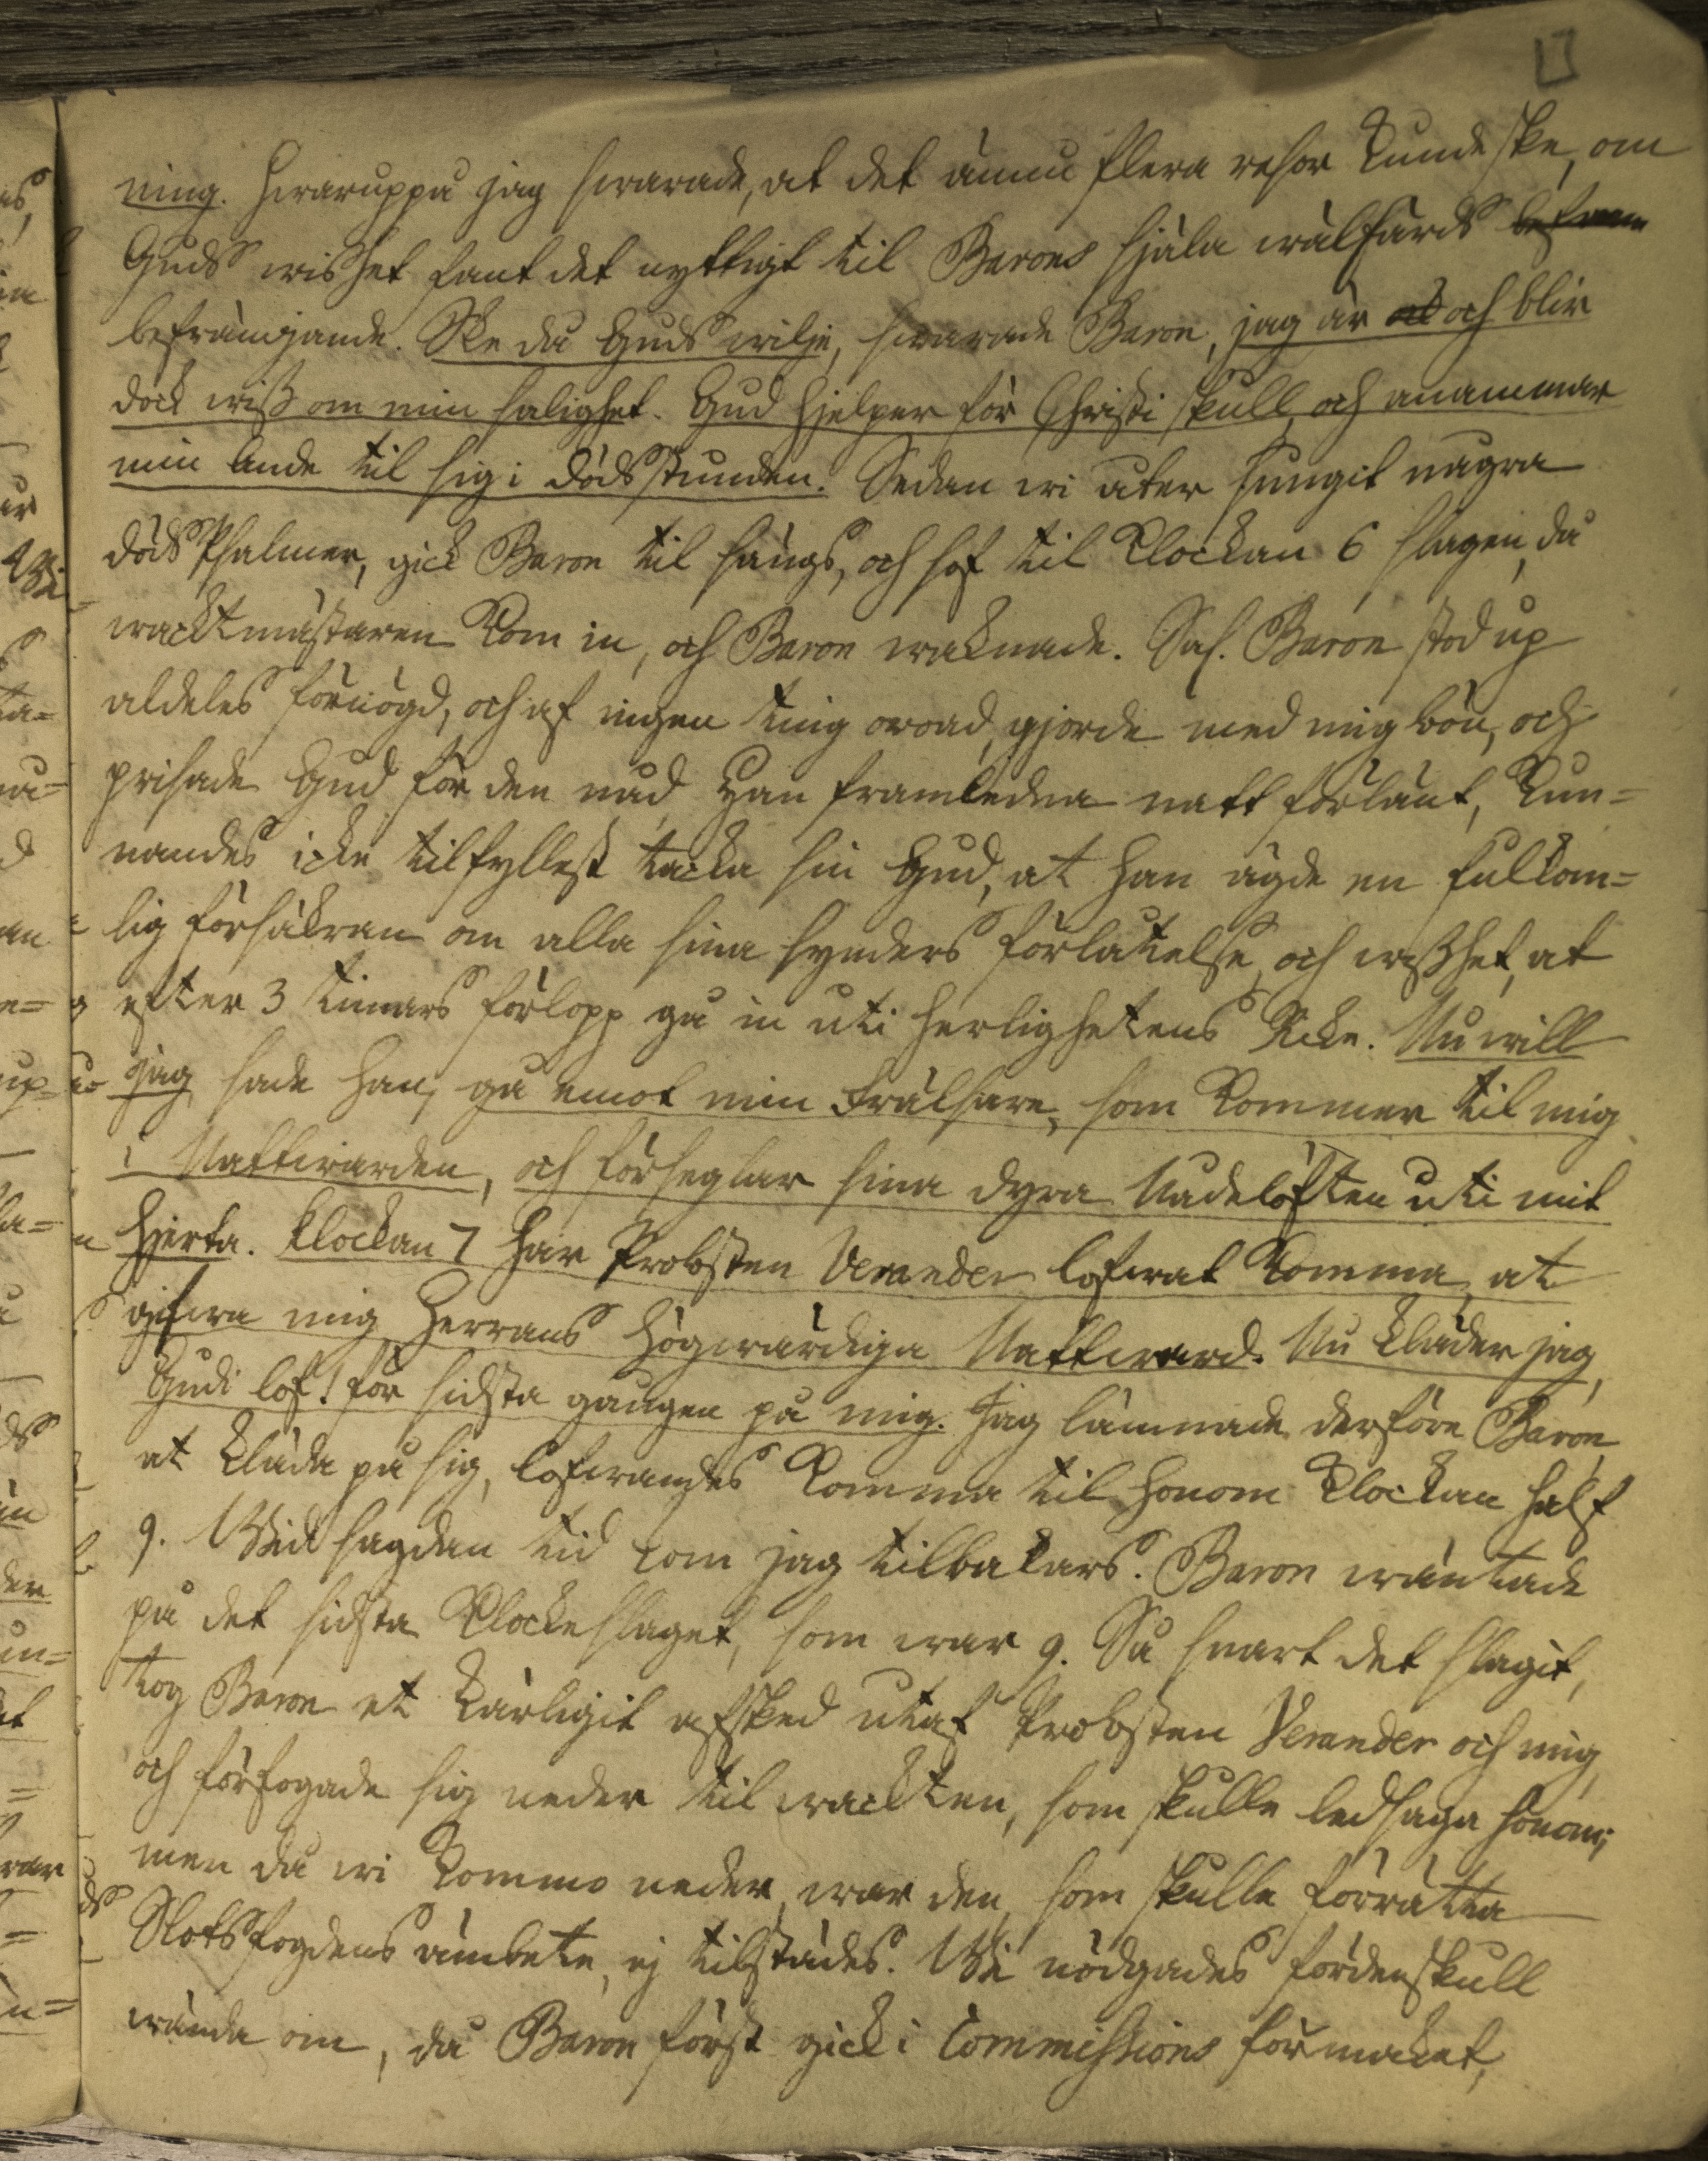 ning. Hwaruppå jag swarade, at det ännu flera resor kunde ske, om
Guds wishet fant det nyttigt til Barons själa wälfärds befräm
befrämjande. Ske då Guds wilje, swarade Baron, jag är och blir
dock wiss om min salighet. Gud hjelper för Christi skull, och anammar
min Ande til sig i dödsstunden. Sedan wi åter sungit några
döds Psalmer, gick Baron til sängs, och sof til klockan 6 slagen, då
wacktmästaren kom in, och Baron waknade. Sal. Baron stod up
aldeles förnögd, och af ingen ting oroad, gjorde med mig bön, och
prisade Gud för den nåd Han framledna natt förlänt, kun=
nandes icke tilfyllest tacka sin Gud, at han ägde en fulkom=
lig försäkran om alla sina synders förlåtelse, och wisshet, at
efter 3 timars förlopp gå in uti herlighetens Rike. Nu will
jag sade han, gå emot min Frälsare, som kommer til mig
i Nattwarden, och förseglar sina dyra Nådelöften uti mit
hjerta. Klockan 7 har Probsten Verander lofwat komma, at
gifwa mig Herrans högwärdiga Nattward. Nu kläder jag,
Gudi lof! för sidsta gången på mig. Jag lämnade derföre Baron,
at kläda på sig, lofwandes komma til honom klockan half
9. Wid sagdan tid kom jag tilbakars. Baron wäntade
på det sidsta klockeslaget, som war 9. Så snart det slagit,
tog Baron et kärligit afsked utaf Probsten Verander och mig,
och förfogade sig neder til wackten, som skulle ledsaga honom;
men då wi kommo neder, war den, som skulle förrätta
Slotsfogdens ämbete, ej tilstädes. Wi nödgades fördenskull
wända om, då Baron först gick i Commissions förmaket,